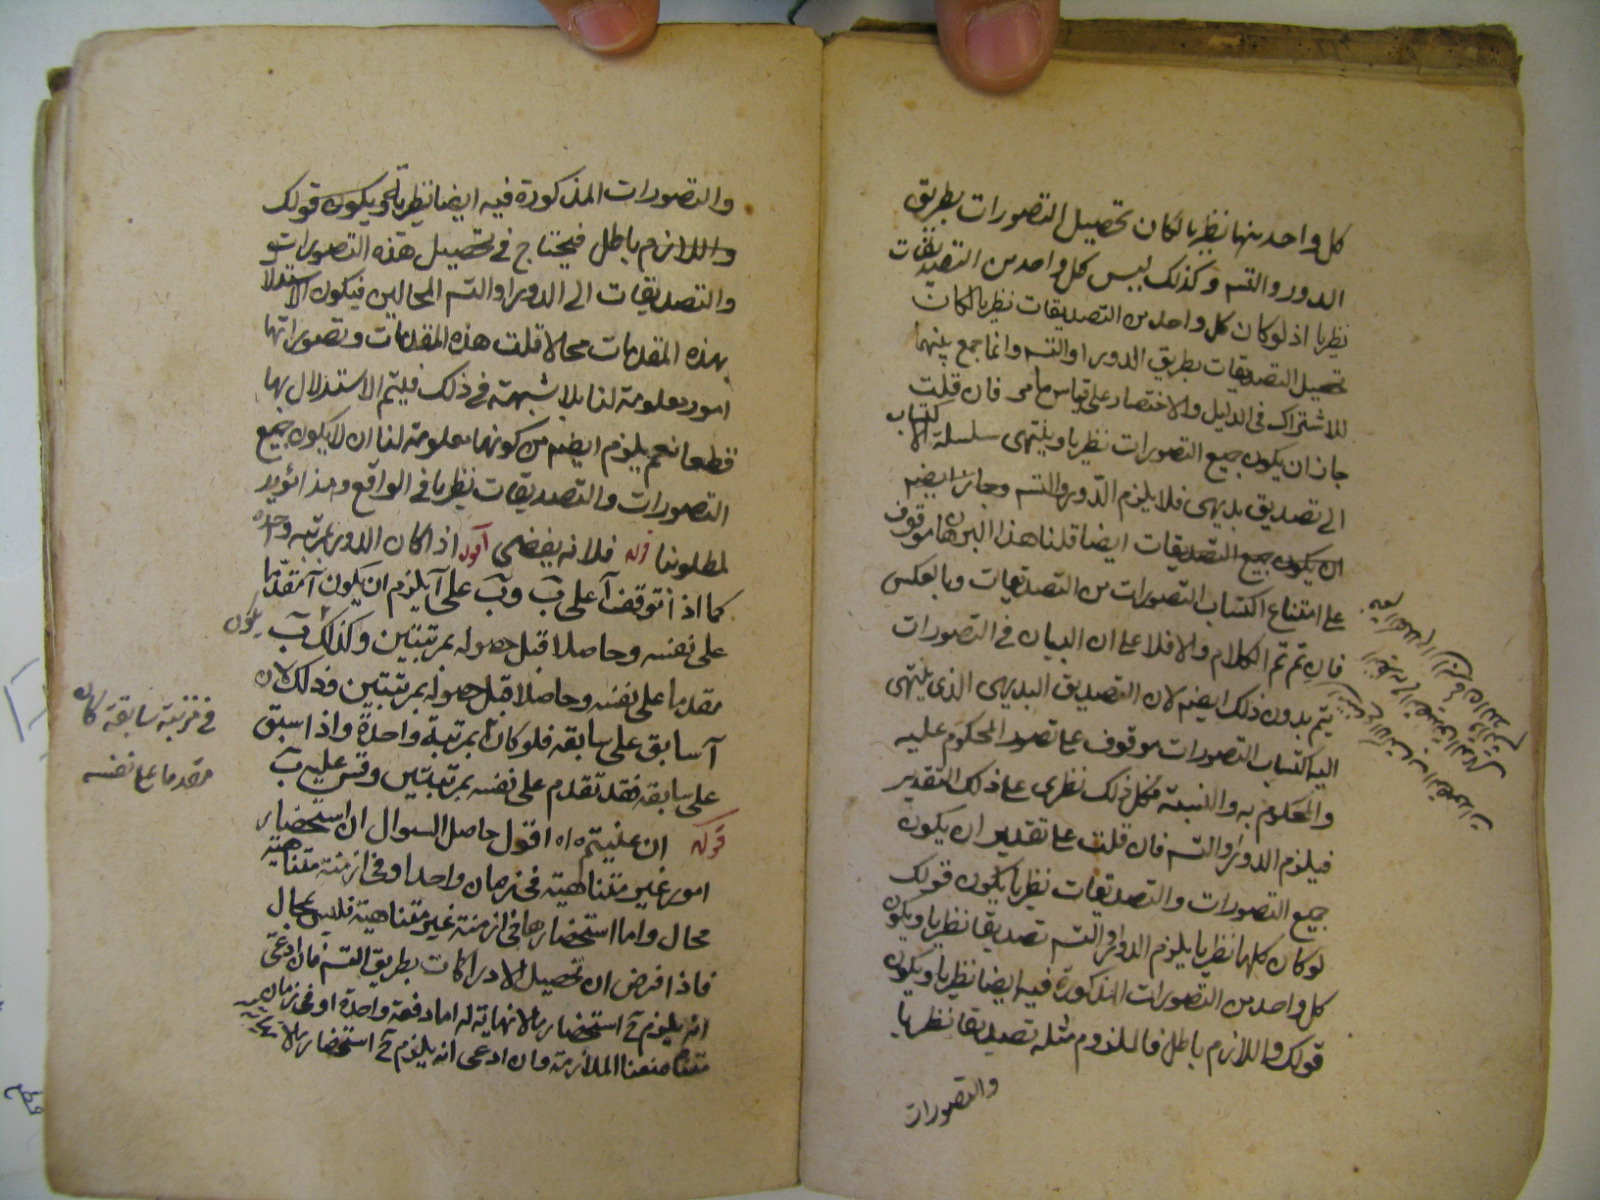 كل واحد منها نظريا لكان تحصيل التصورات بطريق
الدور والتسـ وكذلك ليس كل واحد من التصديقات
نظريا اذ لو كان كل واحد من التصديقات نظريا لكان
تحصيل التصديقات بطريق الدور او التسـ وانما جمع بينهما
للاشتراك في الدليل والاختصار على قياس ما مر فان قلت
جاز ان يكون جميع التصورات نظريا وينتهى سلسلة الاكتساب
الى تصديق بديهى فلا يلزم الدور والتسـ وجائز ايضـ
ان يكون جميع التصديقات ايضا قلنا هذا البرهان موقوف
على امتناع اكتساب التصورات من التصديقات وبالعكس
فان تم تم الكلام والا فلا على ان البيان في التصورات
يتم بدون ذلك ايضـ لان التصديق البديهى الذى ينتهى
اليه اكتساب التصورات موقوف على تصور المحكوم عليه
والمحكوم به والنسبة فكل ذلك نظرى على ذلك التقدير
فيلزم الدور والتسـ فان قلت على تقدير ان يكون
جميع التصورات والتصديقات نظريا يكون قولك
لو كان كلها نظريا يلزم الدور او التسـ تصديقا نظريا ويكون
كل واحد من التصورات المذكورة فيه ايضا نظريا ويكون
قولك واللازم باطل فالملزوم مثله تصديقا نظريا
والتصورات
والتصورات المذكورة فيه ايضا نظريا ويكون قولك
واللازم باطل فيحتاج في تحصيل هذه التصورات
والتصديقات الى الدور او التسـ المحالين فيكون الاستدلال
بهذه المقدمات محالا قلت هذه المقدمات وتصوراتها
امور معلومة لنا بلا شبهة في ذلك فيتم الاستدلال بها
قطعا نعم يلزم ايضـ من كونها معلومة لنا ان لا يكون جميع
التصورات والتصديقات نظريا في الواقع وهذا مؤيد
لمطلوبنا قوله فلانه يفضى اقول اذا كان الدور بمرتبة واحدة
كما اذا توقف آ على ب وب على آ يلزم ان يكون آ متقدما
على نفسه وحاصلا قبل حصوله بمرتبتين وكذلك ب يكون
مقدما على نفسه وحاصلا قبل حصوله بمرتبتين وذلك لان
آ سابق على سابقه فلو كان بمرتبة واحدة واذا سبق
على سابقه فقد تقدم على نفسه بمرتبتين وقس عليه ب
قوله ان عنيتم اه اقول حاصل السوال ان استحضار
امور غير متناهية في زمان واحد او في ازمنة متناهية
محال واما استحضارها في ازمنة غير متناهية فليس بمحال
فاذا فرض ان تحصيل الادراكات بطريق التسـ فان ادعى
انه يلزم ح استحضار ما لا نهاية له اما دفعة واحدة او في زمان
متناه منعنا الملازمة وان ادعى انه يلزم ح استحضار ما لا
في مرتبة سابقة كان
مقدما على نفسه